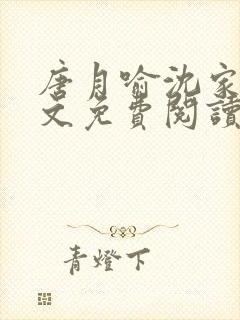 唐月喻沈家
文免費閱讀
青燈下